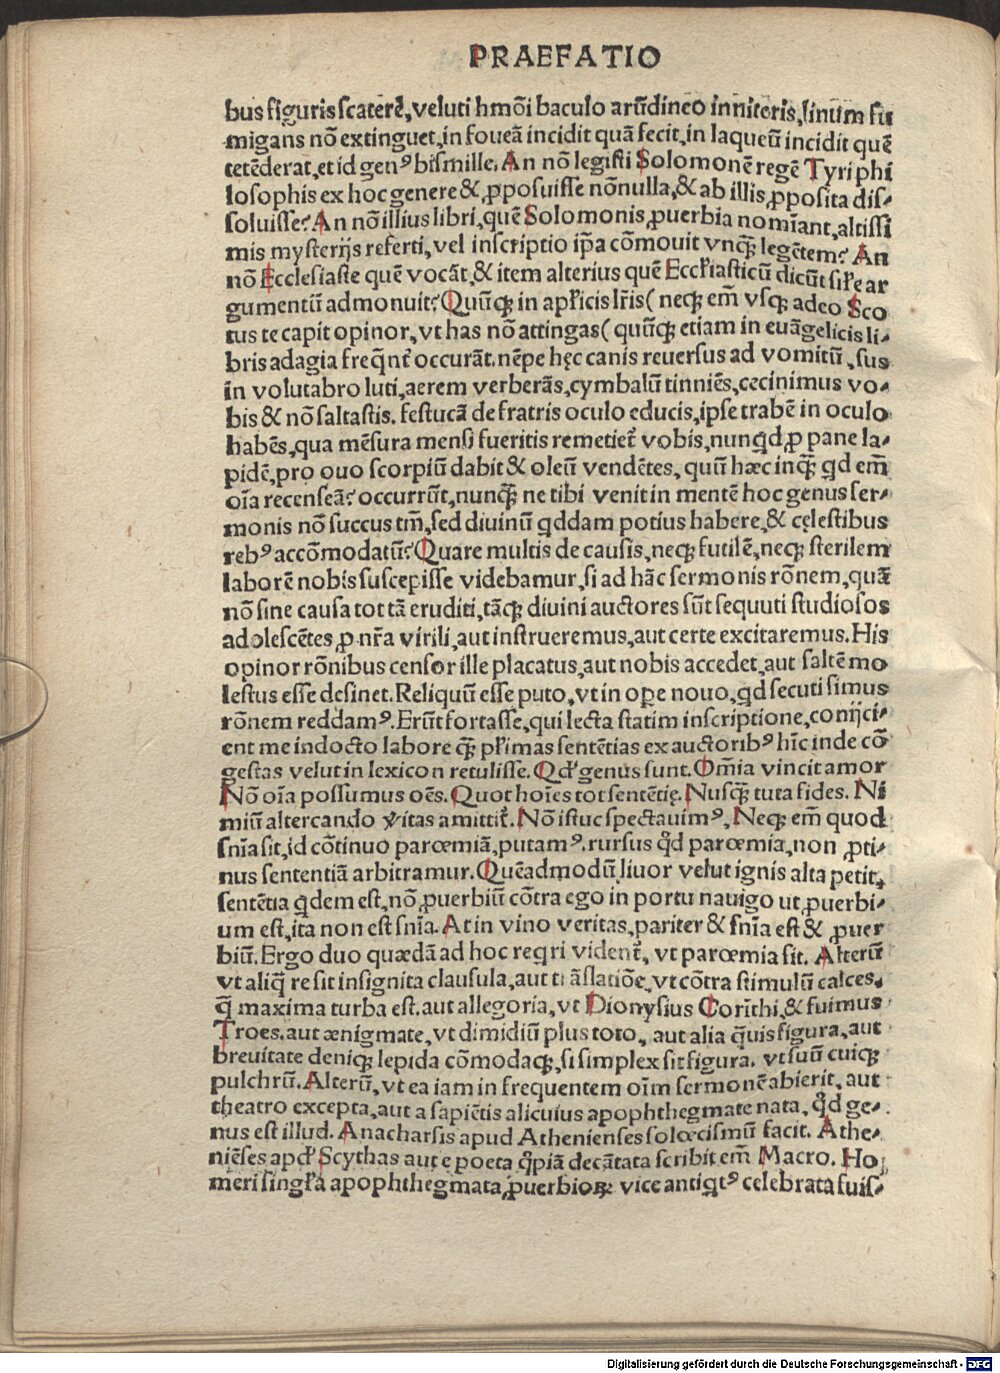 PRAEFATIO
bus figuris scaterē, veluti hmōi baculo arūdineo inniteris, linum fu
migans nō extinguet, in foueā incidit quā fecit, in laqueū incidit quē
tetēderat, et id genꝰ bis mille. An nō legisti Solomonē regē Tyri phi
losophis ex hoc genere & ꝓposuisse nōnulla, & ab illis ꝓposita dis⸗
soluisse? An nō illius libri, quē Solomonis ꝓuerbia nomīant, altissi
mis mysterijs referti, vel inscriptio ip̄a cōmouit vnq̄ȝ legētem? An
nō Ecclesiaste quē vocāt, & item alterius quē Eccłiasticū dicūt siłe ar
gumentū admonuit? Quūqꝫ in apłicis lr̄is (neqꝫ em̄ vsqꝫ adeo Sco
tus te capit opinor, vt has nō attingas( quūqꝫ etiam in euāgelicis li⸗
bris adagia freq̄nt᷑ occurāt. nēpe hęc canis reuersus ad vomitū, sus
in volutabro luti, aerem verberās, cymbalū tinniēs, cecinimus vo⸗
bis & nō saltastis. festucā de fratris oculo educis, ipse trabē in oculo
habēs, qua mēsura mensi fueritis remetiet᷑ vobis, nunꝗd ꝓ pane la⸗
pidē, pro ouo scorpiū dabit & oleū vendētes, quū hæc inq̄ȝ ꝗd em̄
oīa recenseā? occurrūt, nunq̄ȝ ne tibi venit in mentē hoc genus ser⸗
monis nō succus tm̄, sed diuinū ꝗddam potius habere, & cęlestibus
rebꝰ accōmodatū? Quare multis de causis, neqꝫ futilē, neqꝫ sterilem
laborē nobis suscepisse videbamur, si ad hāc sermonis rōnem, quā
nō sine causa tot tā eruditi, tāqꝫ diuini auctores sūt sequuti studiosos
adolescētes ꝓ nr̄a virili, aut instrueremus, aut certe excitaremus. His
opinor rōnibus censor ille placatus, aut nobis accedet, aut saltē mo
lestus esse desinet. Reliquū esse puto, vt in oꝑe nouo, ꝗd secuti simus
rōnem reddamꝰ. Erūt fortasse, qui lecta statim inscriptione, conijci⸗
ent me indocto labore q̄ȝ płimas sentētias ex auctoribꝰ hīc inde cō
gestas velut in lexicon retulisse. Qđ genus sunt. Om̄ia vincit amor
Nō oīa possumus oēs. Quot hoīes tot sentētię. Nusq̄ȝ tuta fides. Ni
miū altercando v̾itas amittit᷑. Nō istuc spectauimꝰ, Neqꝫ em̄ quod
snīa sit, id cōtinuo parœmiā, putamꝰ. rursus qđ parœmia, non ꝓti⸗
nus sententiā arbitramur. Quēadmodū, liuor velut ignis alta petit,
sentētia ꝗdem est, nō ꝓuerbiū cōtra ego in portu nauigo ut ꝓuerbi⸗
um est, ita non est snīa. At in vino veritas, pariter & snīa est & ꝓuer
biū. Ergo duo quædā ad hoc reꝗri vident᷑, vt parœmia sit. Alterū
vt aliq̄ re sit insignita clausula, aut trāslatiōe, vt cōtra stimulū calces,
q̄ maxima turba est. aut allegoria, vt Dionysius Corīthi, & fuimus
Troes. aut ænigmate, vt dimidiū plus toto, aut alia q̄uis figura, aut
breuitate deniqꝫ lepida cōmodaqꝫ, si simplex sit figura. vt suū cuiqꝫ
pulchrū. Alterū, vt ea iam in frequentem oīm sermonē abierit, aut
theatro excepta, aut a sapiētis alicuius apophthegmate nata, qđ ge⸗
nus est illud. Anacharsis apud Athenienses solœcismū facit. Athe⸗
niēses apđ Scythas aut e poeta ꝗpiā decātata scribit em̄ Macro. Ho
meri singła apophthegmata ꝓuerbioꝝ vice antiꝗtꝰ celebrata fuis⸗
Digitalisierung gefördert durch die Deutsche Forschungsgemeinschaft - DFG